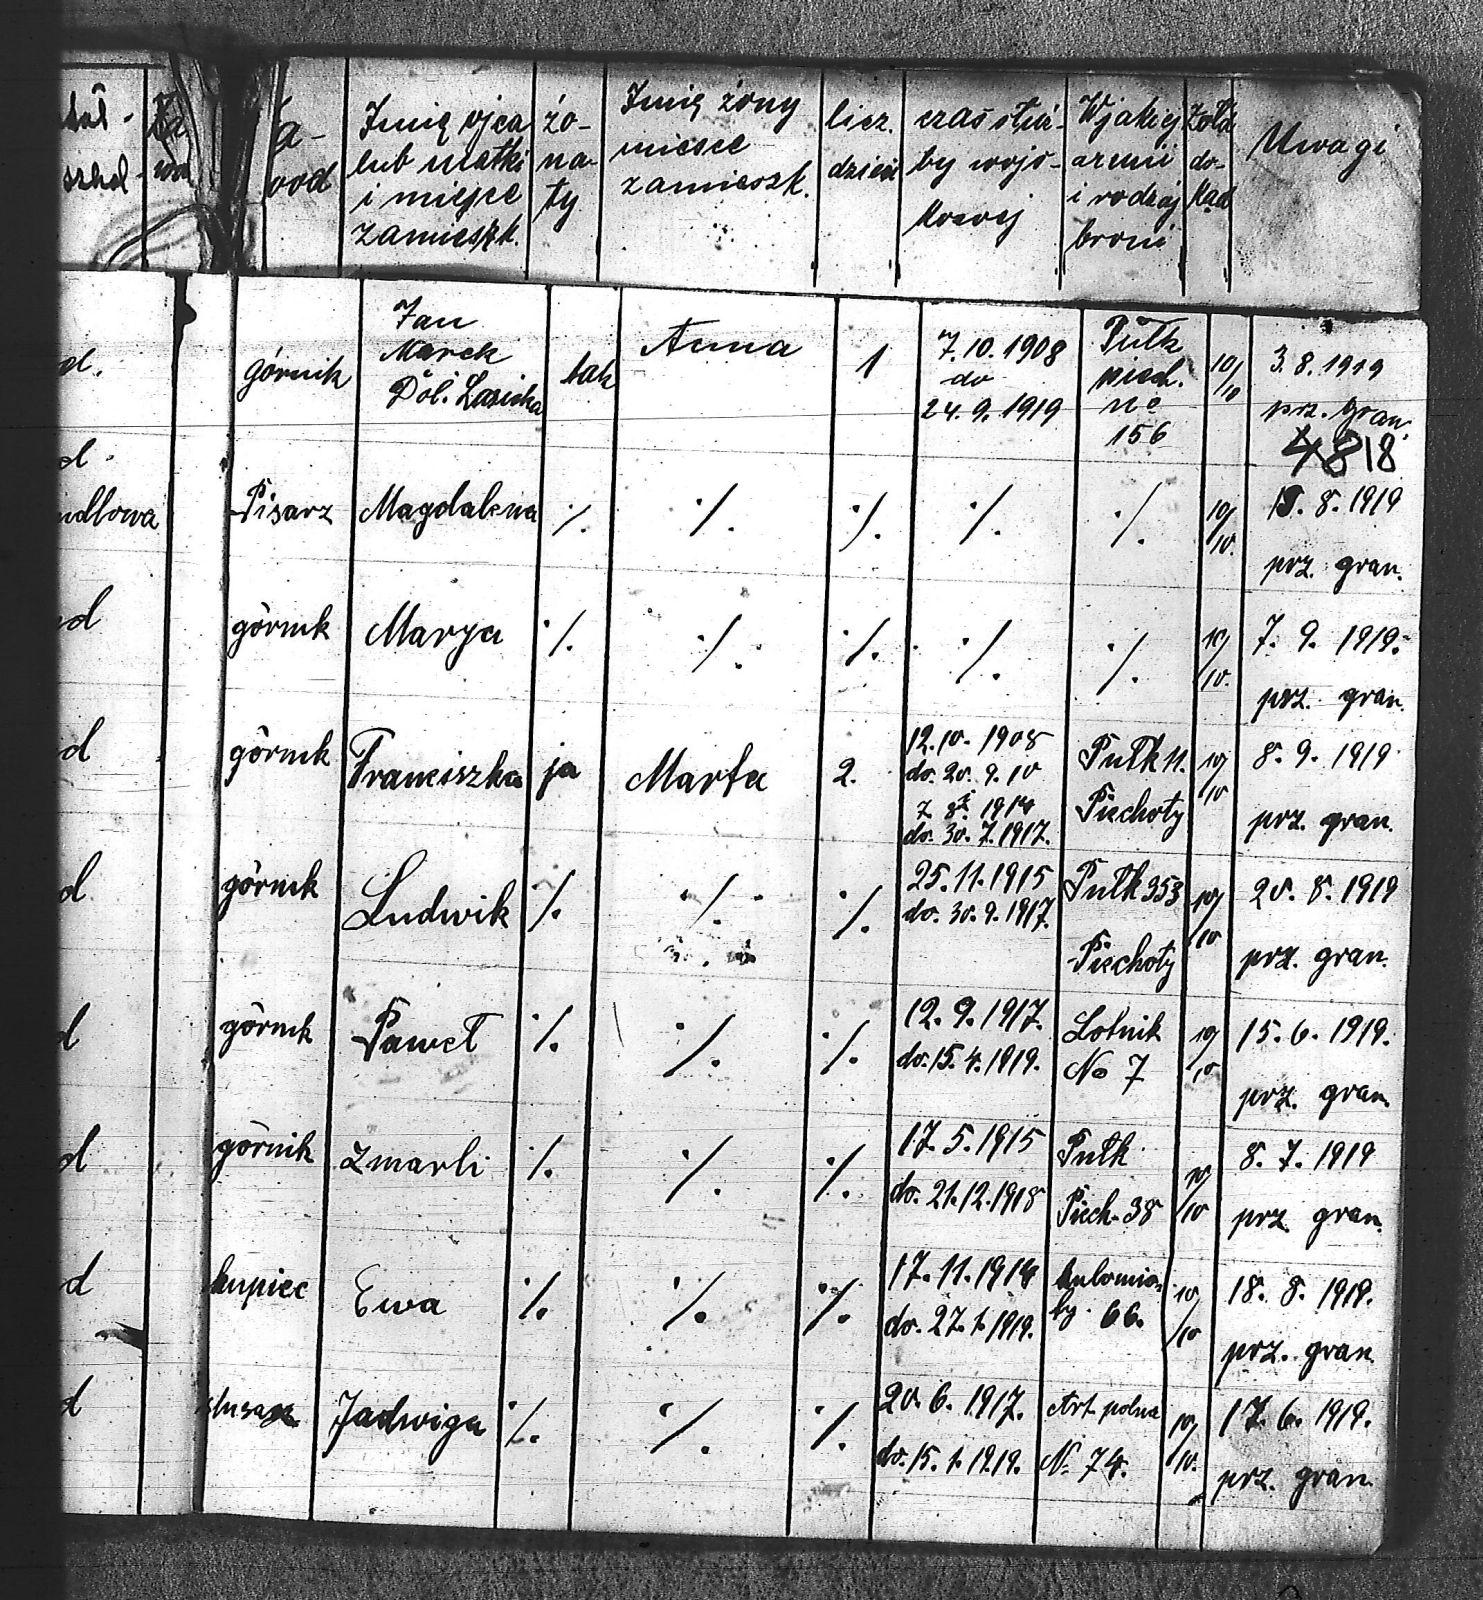 Za- wod
Imię ojca lub matki i miejsce zamieszk.
żo- na- ty
Imię żony miesce zamieszk.
licz. dzieci
czas służ- by wojs- kowej
W jakiej armii i rodzaj broni
Żołd do- kąd
Uwagi
d. górnik Jan Marek Pol. Laziska tak Anna 1 7.10.1908 do 24.9.1919 Pułk piech. nr 156 10/10 3.8.1919 prz. gran.
4818
d. ndlowa Pisarz Magdalena ·/. ·/. ·/. ·/. ·/. 10/10. 15.8.1919 prz. gran.
d górnik Marya ·/. ·/. ·/. ·/. ·/. 10/10. 7.9.1919. prz. gran.
d górnik Franciszka ja Marta 2. 12.10.1908 do. 20.9.10 z 8 1914 do. 30.7.1917. Pułk 11. Piechoty 10/10 8.9.1919 prz. gran.
d górnik Ludwik ·/. ·/. ·/. 25.11.1915 do. 30.9.1917. Pułk 353 Piechoty 10/10 20.8.1919 prz. gran.
d górnik Paweł ·/. ·/. ·/. 12.9.1917. do. 15.4.1919. Lotnik No 7 10/10 15.6.1919. prz. gran.
d górnik zmarli ·/. ·/. ·/. 17.5.1915 do. 21.12.1918 Pułk Piech. 38 10/10 8.7.1919 prz. gran.
d kupiec Ewa ·/. ·/. ·/. 17.11.1914 do. 27.1.1919. 66. 10/10 18.8.1919. prz. gran.
d Jadwiga ·/. ·/. ·/. 20.6.1917. do. 15.1.1919. Art. polna No 74. 10/10. 17.6.1919. prz. gran.